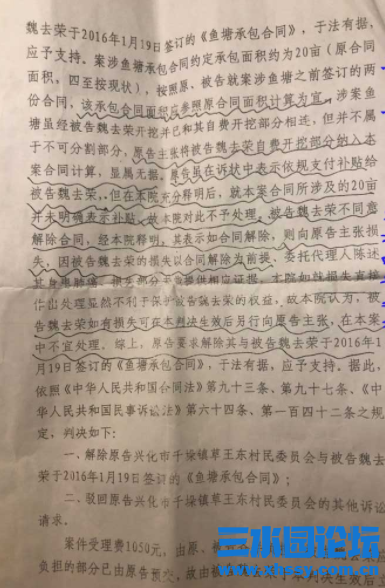 魏去荣于2016年1月19日签订的《鱼塘承包合同》，于法有据，
应予支持。案涉鱼塘承包合同约定承包面积约为20亩（原合同
面积，四至按现状），按照原、被告就案涉鱼塘之前签订的两
份合同，该承包合同面积应参照原合同面积计算为宜，涉案鱼
塘虽经被告魏去荣开挖并已和其自费开挖部分相连，但并不属
于不可分割部分，原告主张将被告魏去荣自费开挖部分纳入本
案合同计算，显属无据。原告虽在诉状中表示依规支付补贴给
被告魏去荣，但在本院充分释明后，就本案合同所涉及的20亩
并未明确表示补贴，故本院对此不予处理。被告魏去荣不同意
解除合同，经本院释明，其表示如合同解除，则向原告主张损
失，因被告魏去荣的损失以合同解除为前提、委托代理人陈述
提供相应证据，本院如就损失直接
作出处理显然不利于保护被告魏去荣的权益，故本院认为，被
告魏去荣如有损失可在本判决生效后另行向原告主张，在本案
中不宜处理。综上，原告要求解除其与被告魏去荣于2016年1
月19日签订的《鱼塘承包合同》，于法有据，应予支持。据此，
依照《中华人民共和国合同法》第九十三条、第九十七条、《中
华人民共和国民事诉讼法》第六十四条、第一百四十二条之规
定，判决如下：
一、解除原告兴化市千垛镇草王东村民委员会与被告魏去
荣于2016年1月19日签订的《鱼塘承包合同》；
二、驳回原告兴化市千垛镇草王东村民委员会的其他诉讼
请求。
案件受理费1050元，由原、被
负担的部分已由原告预交，故由被 决生效后
三水园论坛
xhssy.com.cn